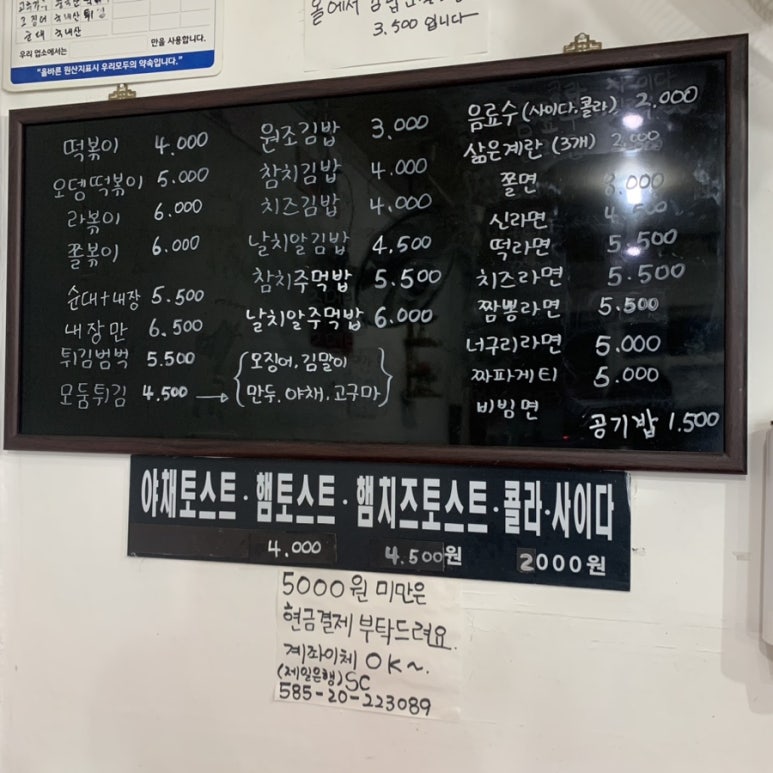 고춧가루
오징어 국내산
순대 국내산
우리 업소에서는 만을 사용합니다.
"올바른 원산지표시 우리모두의 약속입니다."
3.500 입니다
떡볶이 4.000
오뎅떡볶이 5.000
라볶이 6.000
쫄볶이 6.000
순대+내장 5.500
내장만 6.500
튀김범벅 5.500
모둠튀김 4.500 → {오징어, 김말이
만두, 야채, 고구마}
원조김밥 3.000
참치김밥 4.000
치즈김밥 4.000
날치알김밥 4,500
참치주먹밥 5.500
날치알주먹밥 6.000
음료수(사이다.콜라) 2.000
삶은계란 (3개) 2.000
쫄면 .000
신라면 4.500
떡라면 5.500
치즈라면 5.500
짬뽕라면 5.500
너구리라면 5.000
짜파게티 5.000
비빔면
공기밥 1.500
야채토스트·햄토스트·햄치즈토스트·콜라·사이다
4.000 4.500원 2000원
5000원 미만은
현금결제 부탁드려요.
계좌이체 OK~.
(제일은행)SC
585-20-223089